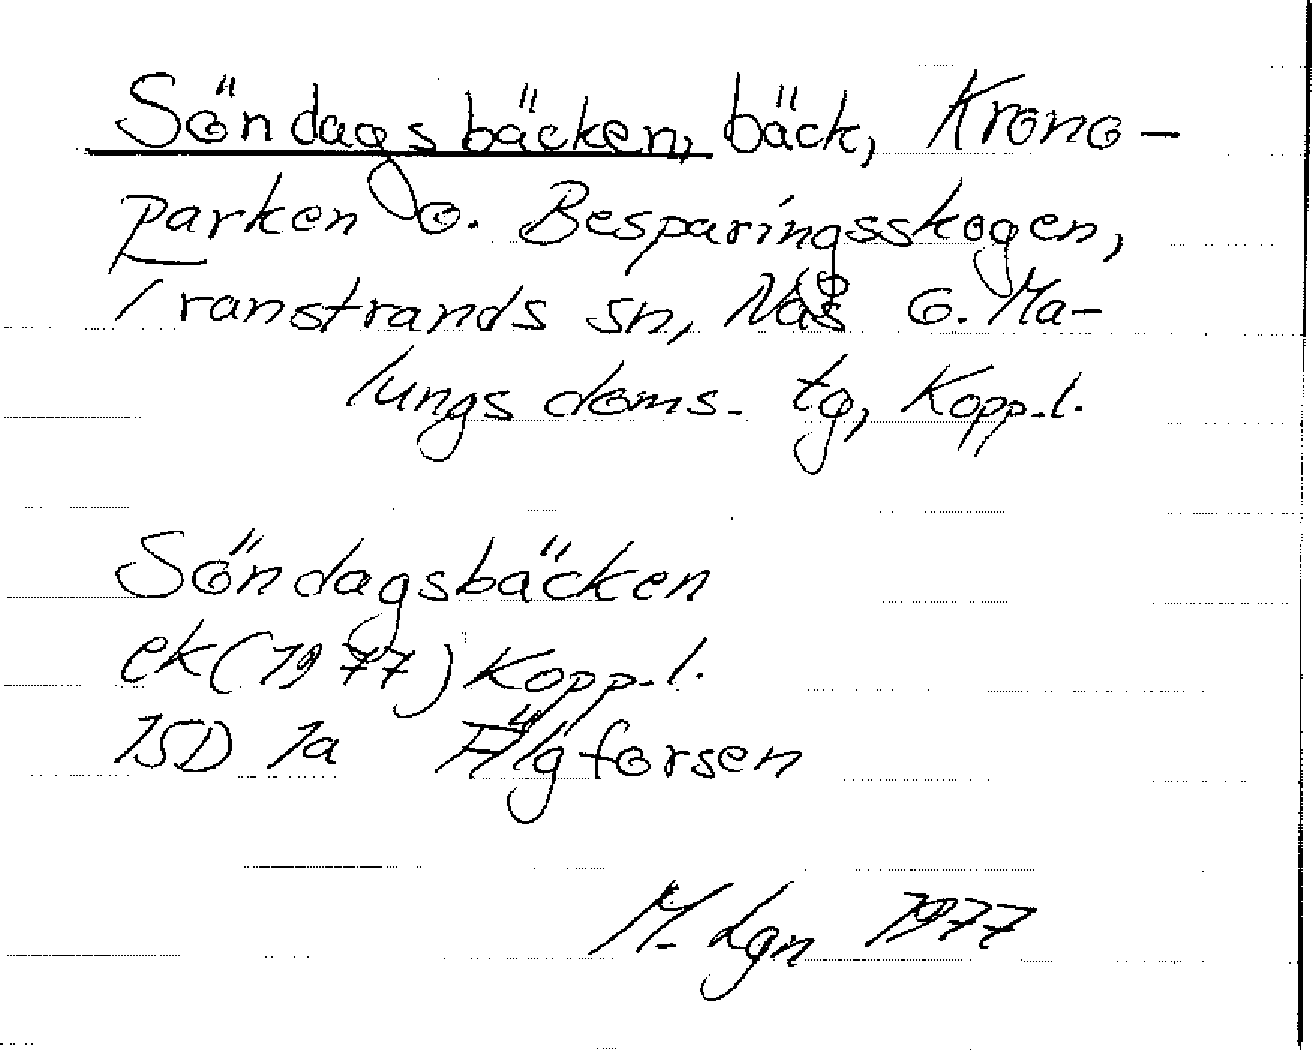 Söndagsbäcken, bäck, Krono-
parken o. Besparingsskogen,
Transtrands sn, Nås o. Ma-
lungs doms. tg, Kopp. l.
Söndagsbäcken
ek (1977) Kopp. l.
15D 1a Älgforsen
M. Lgn 1977